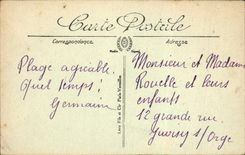 Carte Postale
Correspondance
Adresse
Plage agréable.
Quel temps!
Germaine
Monsieur et Madame
Rouelle et leurs
enfants
12 grande rue.
Juvisy s/Orge